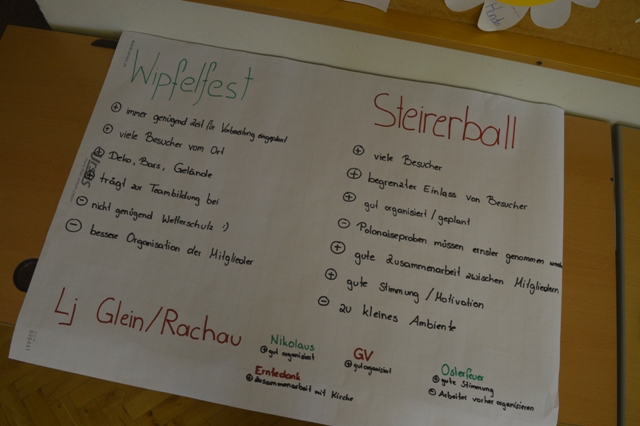 Wipfelfest
⊕ immer genügend Zeit für Vorbereitung eingeplant
⊕ viele Besucher vom Ort
⊕ Deko, Bars, Gelände
⊕ trägt zur Teambildung bei
⊖ nicht genügend Wetterschutz :)
⊖ bessere Organisation der Mitglieder
Steirerball
⊕ viele Besucher
⊕ begrenzter Einlass von Besucher
⊕ gut organisiert/geplant
⊖ Polonaiseproben müssen ernster genommen
⊕ gute Zusammenarbeit zwischen Mitgliedern
⊕ gute Stimmung/Motivation
⊖ zu kleines Ambiente
Lj Glein/Rachau
Nikolaus
⊕ gut organisiert
Erntedank
⊕ Zusammenarbeit mit Kirche
GV
⊕ gut organisiert
Osterfeuer
⊕ gute Stimmung
⊖ Arbeiter vorher organisieren